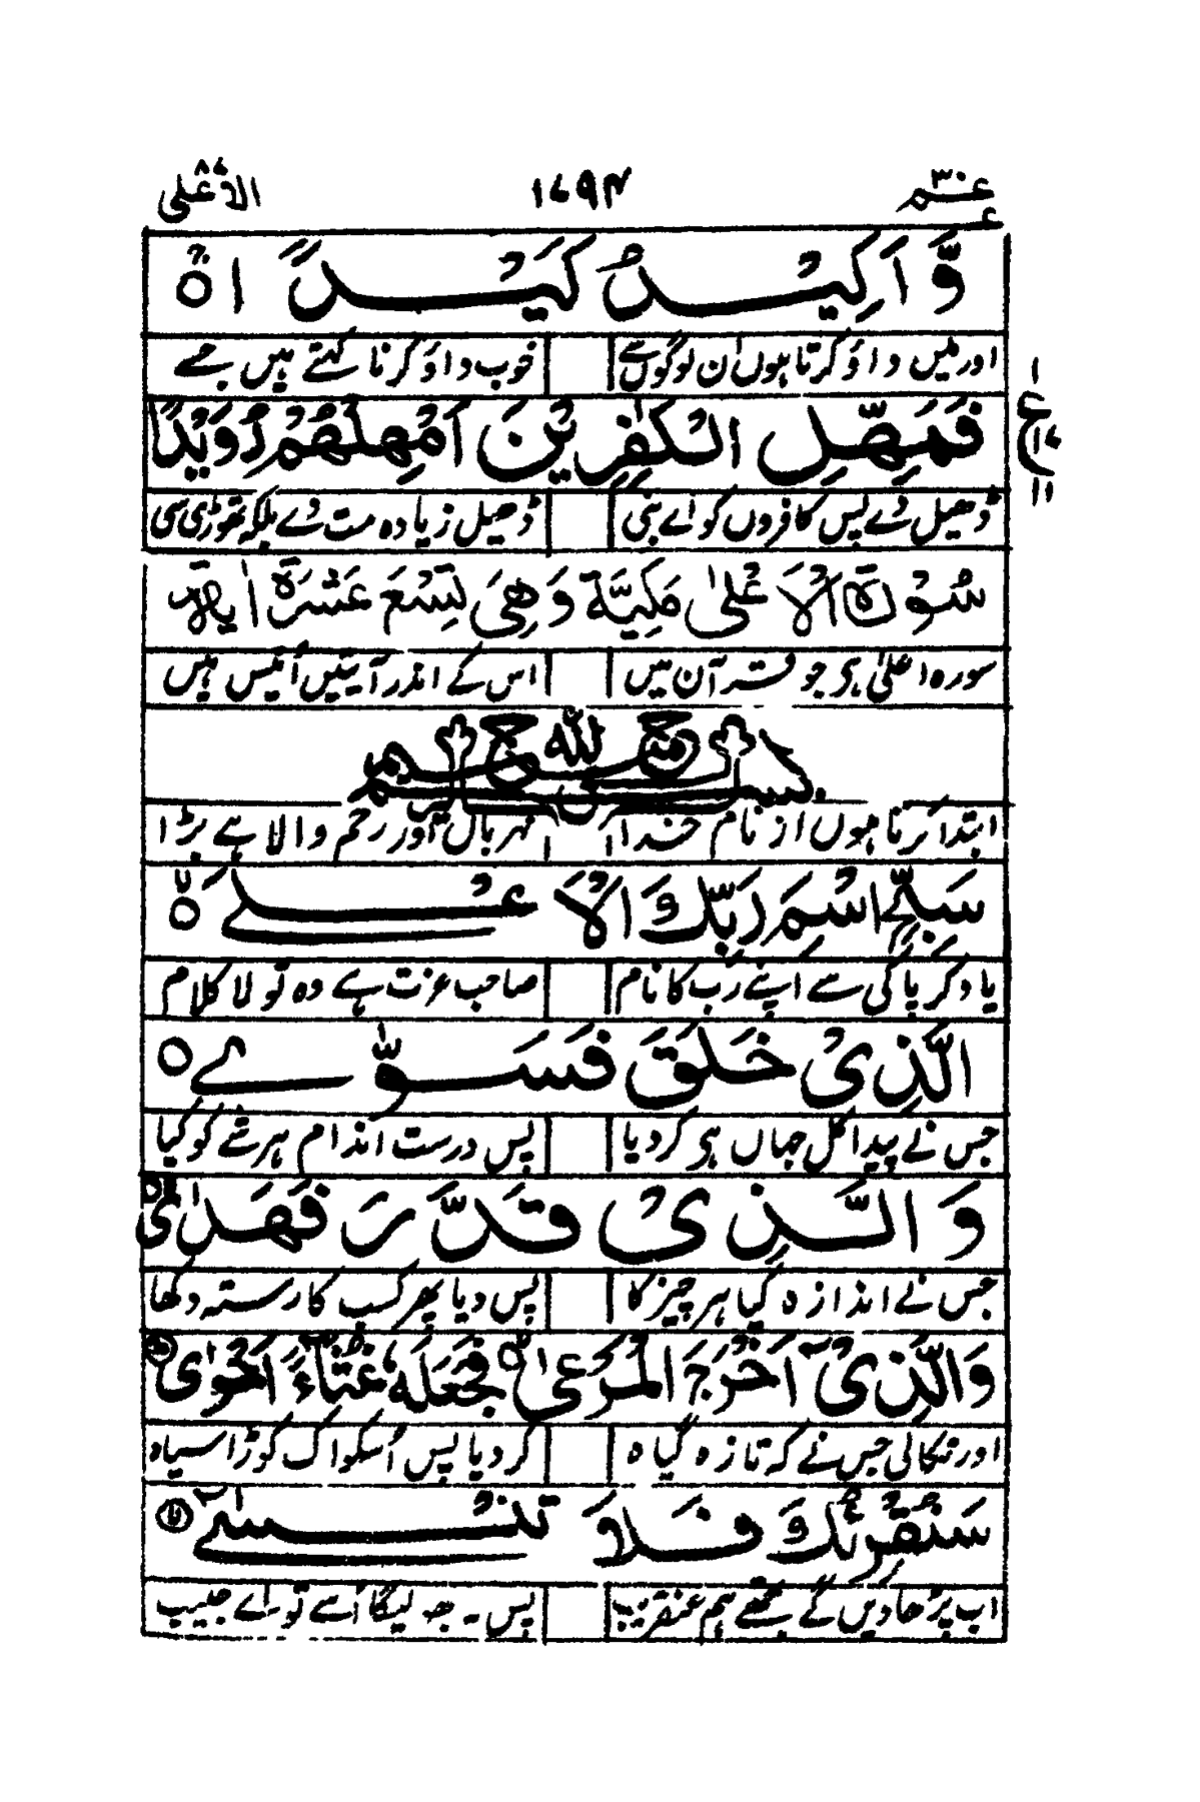 عم ٣٠ ١٤٩٤ الاعلى ٨٧
وَّاَكِيْدُ كَيْدًا ۝
اور میں داؤ کرتا ہوں ان لوگوں سے خوب داؤ کرنا کہتے ہیں جسے
فَمَهِّلِ الْكٰفِرِيْنَ اَمْهِلْهُمْ رُوَيْدًا
ڈھیل دے پس کافروں کو اے نبی ڈھیل زیادہ مت دے بلکہ تھوڑی سی
سُوْرَةُ الْاَعْلٰى مَكِّيَّةٌ وَّهِىَ تِسْعَ عَشْرَةَ اٰيَةً
سورہ اعلیٰ ہی جو قرآن میں اس کے اندر آیتیں انیس ہیں
بسم الله الرحمن الرحيم
ابتدا کرتا ہوں از نام خدا مہرباں اور رحم والا ہے بڑا
سَبِّحِ اسْمَ رَبِّكَ الْاَعْلَى ۝
یاد کر پاکی سے اپنے رب کا نام صاحب عزت ہے وہ تو لا کلام
الَّذِىْ خَلَقَ فَسَوّٰى ۝
جس نے پیدا کل جہاں ہی کر دیا پس درست اندام ہر شے کو کیا
وَالَّذِىْ قَدَّرَ فَهَدٰى ۝
جس نے اندازہ کیا ہر چیز کا پس دیا پھر کسب کا رستہ دکھا
وَالَّذِىْٓ اَخْرَجَ الْمَرْعٰى ۝ فَجَعَلَهٗ غُثَآءً اَحْوٰى ۝
اور نکالی جس نے کہ تازہ گیاہ کر دیا پس اُسکو اک کوڑا سیاہ
سَنُقْرِئُكَ فَلَا تَنْسٰٓى ۝
اب پڑھا دیں گے تجھے ہم عنقریب پس نہ بھولیگا اُسے تو اے حبیب